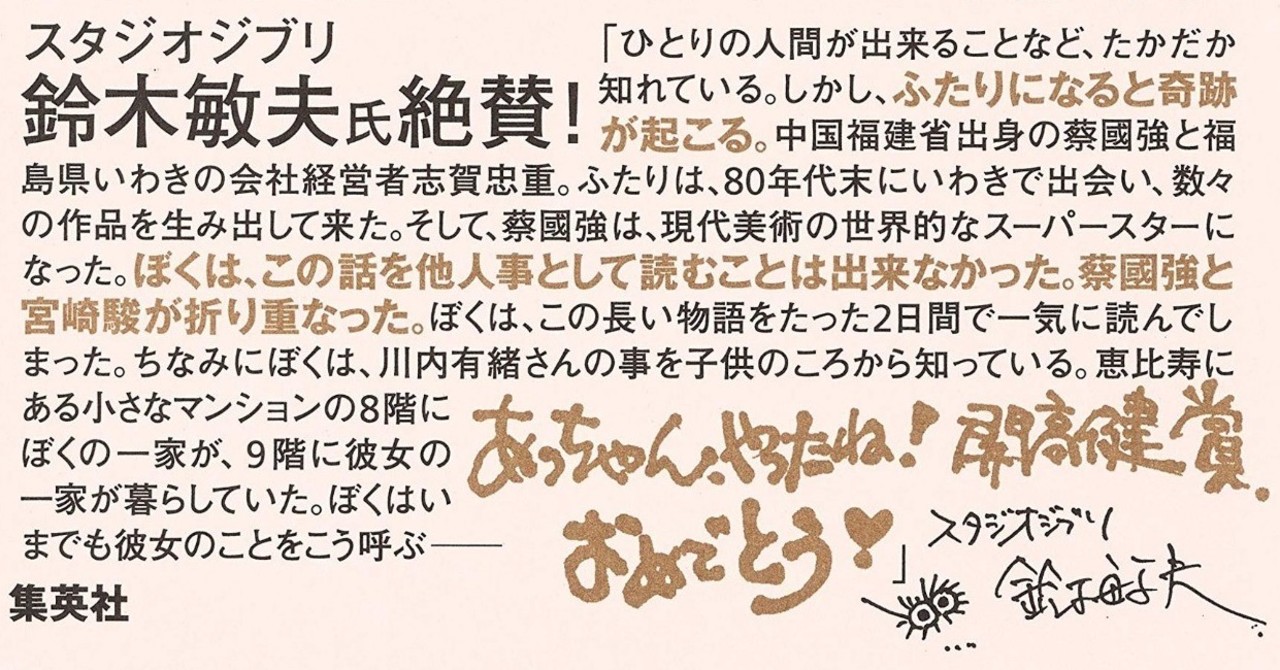 スタジオジブリ
鈴木敏夫氏絶賛!
「ひとりの人間が出来ることなど、たかだか
知れている。しかし、ふたりになると奇跡
が起こる。中国福建省出身の蔡國強と福
島県いわきの会社経営者志賀忠重。ふたりは、80年代末にいわきで出会い、数々
の作品を生み出して来た。そして、蔡國強は、現代美術の世界的なスーパースターに
なった。ぼくは、この話を他人事として読むことは出来なかった。蔡國強と
宮崎駿が折り重なった。ぼくは、この長い物語をたった2日間で一気に読んでし
まった。ちなみにぼくは、川内有緒さんの事を子供のころから知っている。恵比寿に
ある小さなマンションの8階に
ぼくの一家が、9階に彼女の
一家が暮らしていた。ぼくはい
までも彼女のことをこう呼ぶ——
あっちゃん、やったね!開高健賞。
おめでとう!」
スタジオジブリ
鈴木敏夫
集英社